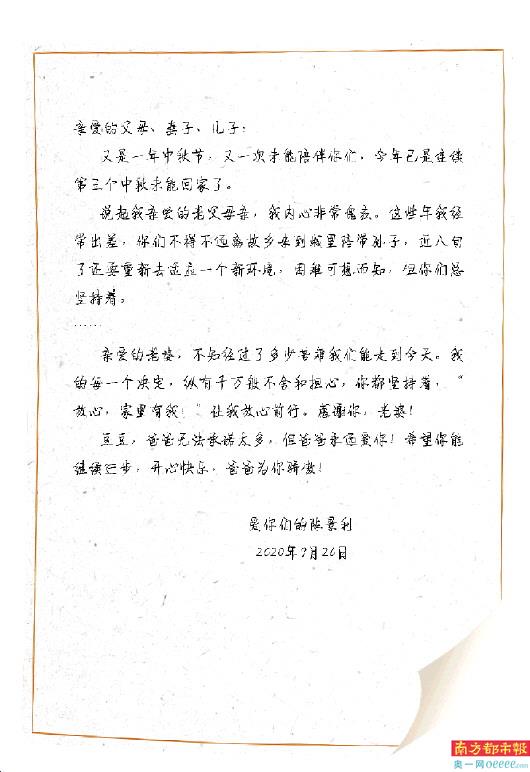 亲爱的父母、妻子、儿子：
又是一年中秋节，又一次未能陪伴你们，今年已是连续
第三个中秋未能回家了。
说起我亲爱的老父母亲，我内心非常愧疚。这些年我经
常出差，你们不得不远离故乡来到城里陪带孙子，近八旬
了还要重新去适应一个新环境，困难可想而知，但你们总
坚持着。
……
亲爱的老婆，不知经过了多少苦难我们能走到今天。我
的每一个决定，纵有千万般不舍和担心，你都坚持着，“
放心，家里有我！”让我放心前行。感谢你，老婆！
豆豆，爸爸无法承诺太多，但爸爸永远爱你！希望你能
继续进步，开心快乐，爸爸为你骄傲！
爱你们的陈景利
2020年9月26日
南方都市报
奥一网oeeee.com